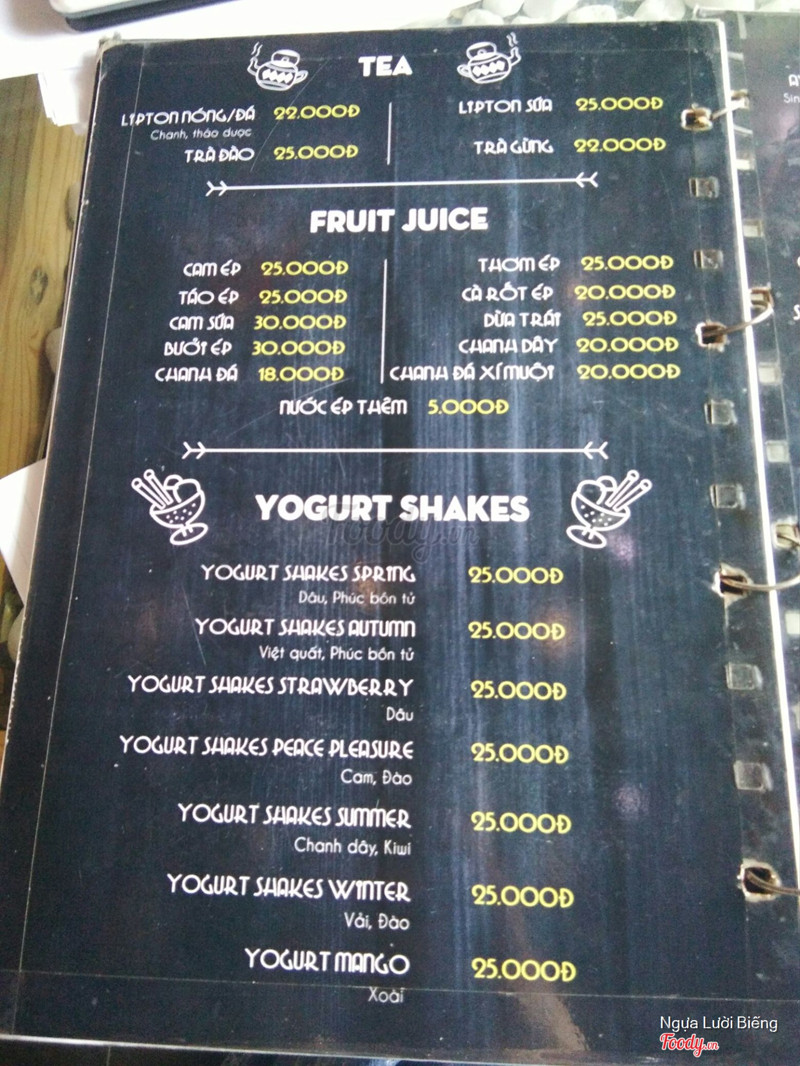 TEA
LIPTON NÓNG/ĐÁ 22.000Đ
Chanh, thảo dược
TRÀ ĐÀO 25.000Đ
LIPTON SỮA 25.000Đ
TRÀ GỪNG 22.000Đ
FRUIT JUICE
CAM ÉP 25.000Đ
TÁO ÉP 25.000Đ
CAM SỮA 30.000Đ
BƯỞI ÉP 30.000Đ
CHANH ĐÁ 18.000Đ
THƠM ÉP 25.000Đ
CÀ RỐT ÉP 20.000Đ
DỪA TRÁI 25.000Đ
CHANH DÂY 20.000Đ
CHANH ĐÁ XÍ MUỘI 20.000Đ
NƯỚC ÉP THÊM 5.000Đ
YOGURT SHAKES
Foody.vn
YOGURT SHAKES SPRING 25.000Đ
Dâu, Phúc bồn tử
YOGURT SHAKES AUTUMN 25.000Đ
Việt quất, Phúc bồn tử
YOGURT SHAKES STRAWBERRY 25.000Đ
Dâu
YOGURT SHAKES PEACE PLEASURE 25.000Đ
Cam, Đào
YOGURT SHAKES SUMMER 25.000Đ
Chanh dây, Kiwi
YOGURT SHAKES WINTER 25.000Đ
Vải, Đào
YOGURT MANGO 25.000Đ
Xoài
Ngựa Lười Biếng
Foody.vn